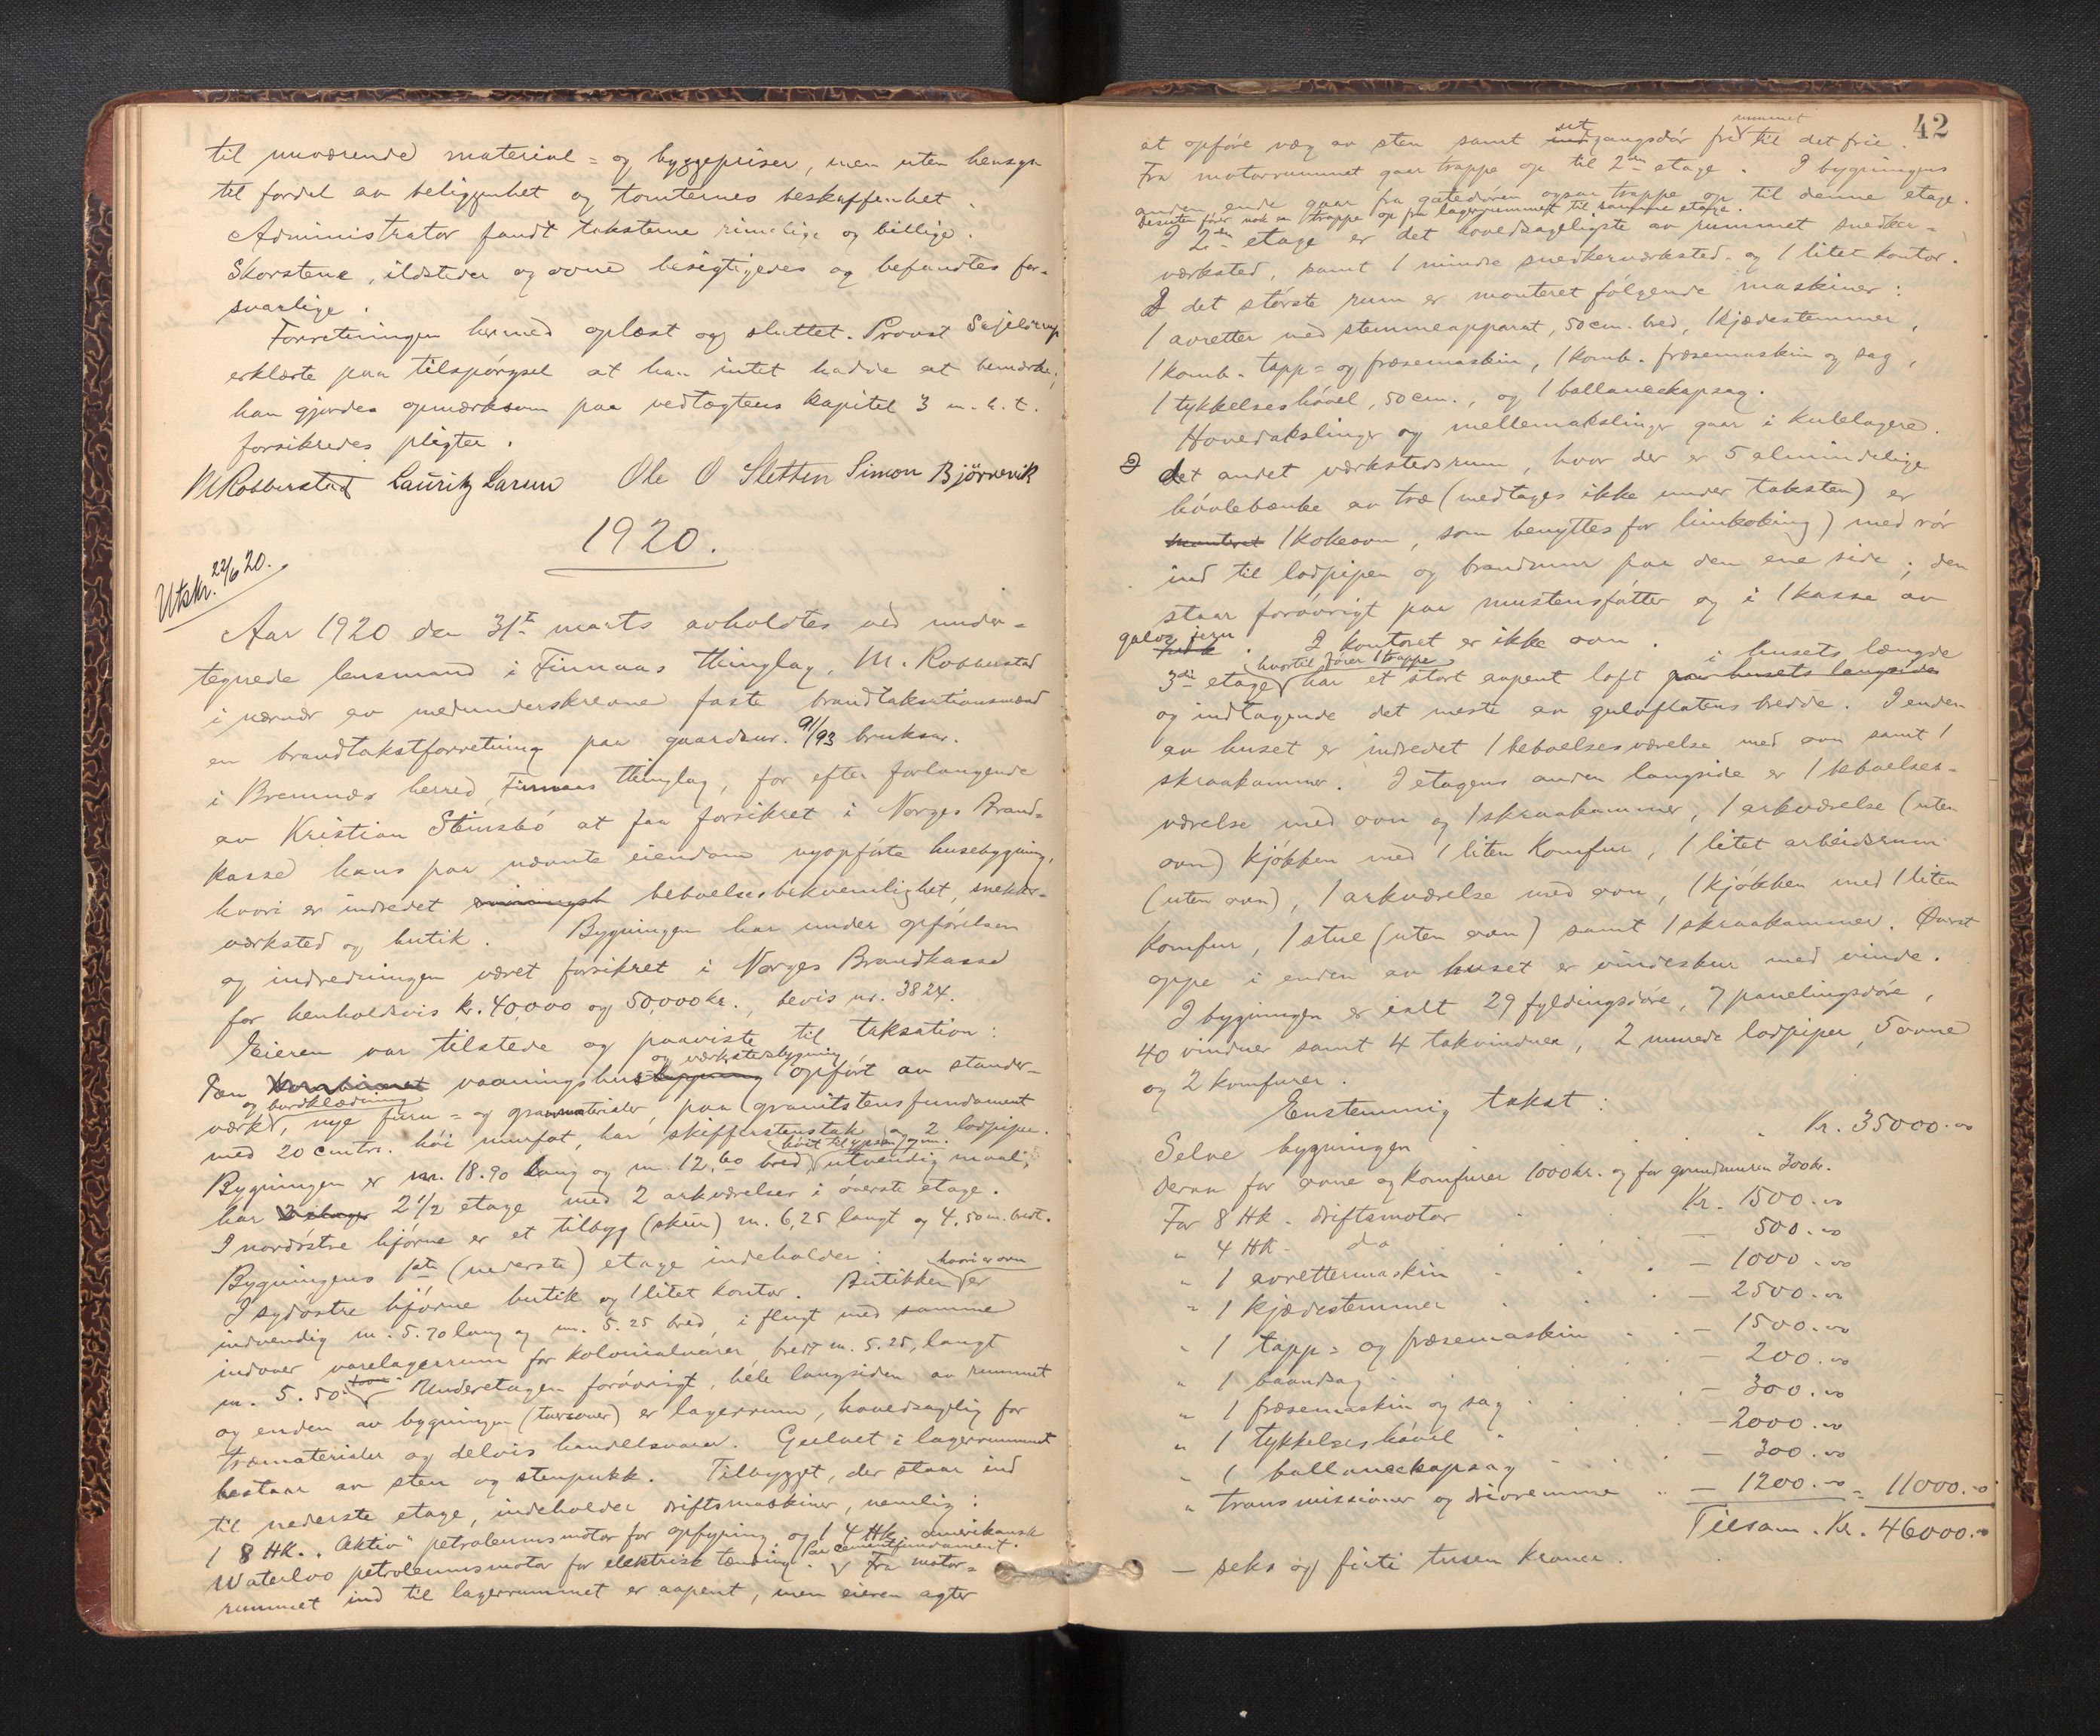 til nuværende material- og byggepriser, men uten hensyn
til fordel av beliggenhet og tomternes beskaffenhet.
Administrator fandt taksterne rimelige og billige.
Skorstene, ildsteder og ovne besigtigedes og befandtes for-
svarlige.
Forretningen hermed oplæst og sluttet. Provst
erklærte paa tilspørgsel at han intet hadde at bemærke;
han gjordes opmærksom paa vedtægtens kapitel 3 m.h.t.
forsikredes pligter.
M Robberstad Lauritz Larsen Ole O Sletten Simon Bjørnevik
1920.
Utskr. 22/6 20.
Aar 1920 den 31te marts avholdtes ved under-
tegnede lensmand i Finnaas thinglag, M. Robberstad
i nærvær av medunderskrevne faste brandtakstionsmænd
en brandtakstforretning paa gaardsnr. 91/93 bruksnr.
i Bremnæs herred, Finnaas thinglag, for efter forlangende
av Kristian Stensbø at faa forsikret i Norges Brand-
kasse hans paa nævnte eiendom nyopførte husebygning,
hvori er indredet beboelsesbekvemlighet, snekker-
verksted og butik. Bygningen har under opførelsen
og indredningen været forsikret i Norges Brandkasse
for henholdsvis kr. 40,000 og 50,000 kr., bevis nr. 3824.
Eieren var tilstede og paaviste til taksation:
og værkstedsbygning
Den kombineret vaaningshusbygning opført av stender-
og bordklædning
værk, nye furu- og granmaterialer, paa granitstensfundament
med 20 cmtr. høi murfot, har skifferstenstak og 2 lodpiper.
høit til gesims m.
Bygningen er m. 18.90 lang og m. 12.60 bred, utvendig maal,
har 3 etager 2 1/2 etage med 2 arkværelser i øverste etage.
I nordøstre hjørne er et tilbyg (skur) m. 6,25 langt og 4,50 m. bredt.
Bygningens 1ste (nederste) etage indeholder:
hvori er ovn
I sydøstre hjørne butik og 1 litet kontor. Butikken er
indvendig m. 5.70 lang og m. 5.25 bred, i flugt med samme
indover varelagerrum for kolonialvarer bredt m. 5.25, langt
m. 5.50. Underetagen forøvrigt, hele langsiden av rummet
og enden av bygningen (tversover) er lagerrum, hovedsagelig for
træmaterialer og delvis handelsvarer. Gulvet i lagerrummet
bestaar av sten og stenpukk. Tilbygget, der staar ind
til nederste etage, indeholder driftsmaskiner, nemlig:
1 8 HK. "Aktiv" petroleumsmotor for opfyring og 1 4 HK. amerikansk
Paa cementfundament.
Waterloo petroleumsmotor for elektrisk tænding. Fra motor-
rummet ind til lagerrummet er aapent, men eieren agter
42
ut rummet
at opføre væg av sten samt indgangsdør fra til det frie.
Fra motorrummet gaar trappe op til 2den etage. I bygningens
anden ende gaar fra gatedøren ogsaa trappe op til denne etage.
Desuten fører nok en trappe op fra lagerrummet til samme etage.
I 2den etage er det hovedsageligste av rummet snedker-
værksted, samt 1 mindre snedkerværksted og 1 litet kontor.
I det største rum er monteret følgende maskiner:
1 avretter med stemmeapparat, 50 cm. bred, 1 kjædestemmer,
1 komb. tapp- og fræsemaskin, 1 komb. fræsemaskin og sag,
1 tykkelseshøvel, 50 cm., og 1 ballancekapsag.
Hovedakslinger og mellemakslinger gaar i kulelagere.
I det andet værkstedsrum, hvor der er 5 almindelige
høvlebænke av træ (medtages ikke under taksten) er
monteret 1 kokeovn, som benyttes for limkoking) med rør
ind til lodpipen og brandmur paa den ene side; den
staar forøvrigt paa murstensføtter og i 1 kasse av
galv. jern. I kontoret er ikke ovn.
hvortil fører 1 trappe i husets længde
3die etage har et stort aapent loft paa husets langside
og indtagende det meste av gulvflatens bredde. I enden
av huset er indredet 1 beboelsesværelse med ovn samt 1
skraakammer. I etagens anden langside er 1 beboelses-
værelse med ovn og 1 skraakammer, 1 arkværelse (uten
ovn) kjøkken med 1 liten komfur, 1 litet arbeidsrum
(uten ovn), 1 arkværelse med ovn, 1 kjøkken med 1 liten
komfur, 1 stue (uten ovn) samt 1 skraakammer. Øverst
oppe i enden av huset er vindeskur med vinde.
I bygningen er ialt 29 fyldingsdøre, 7 panelingsdøre,
40 vinduer samt 4 takvinduer, 2 murede lodpiper, 5 ovne
og 2 komfurer.
Enstemmig takst:
Selve bygningen . . . . . Kr. 35000.00
Derav for ovne og komfurer 1000 kr. og for grundmuren 300 kr.
For 8 HK. driftsmotor . . . Kr. 1500.00
" 4 HK. do . . . — 500.00
" 1 avrettermaskin . . . — 1000.00
" 1 kjædestemmer . . . — 2500.00
" 1 tapp- og fræsemaskin . . — 1500.00
" 1 baandsag . . . — 200.00
" 1 fræsemaskin og sag . . . — 300.00
" 1 tykkelseshøvel . . . — 2000.00
" 1 ballancekapsag . . . — 300.00
" transmissioner og drivremme . . — 1200.00 = 11000.00
Tilsam. Kr. 46000.00
— seks og firti tusen kroner.